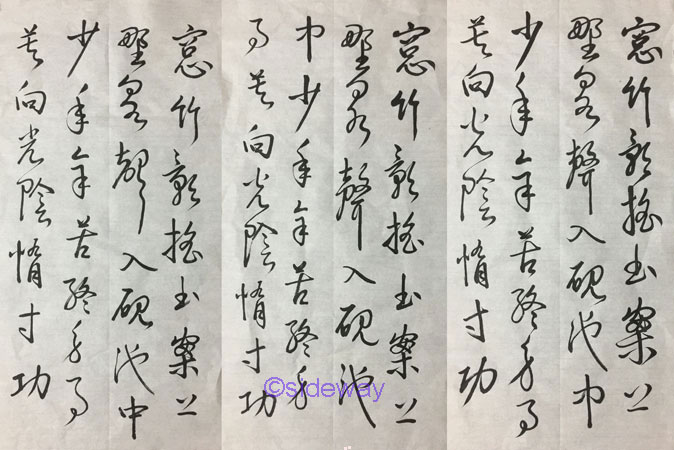 窓竹影搖書案上
野泉聲入硯池中
少年辛苦終身事
莫向光陰惰寸功
窓竹影搖書案上
野泉聲入硯池
中少年辛苦終身
事莫向光陰惰寸功
窓竹影搖書案上
野泉聲入硯池中
少年辛苦終身事
莫向光陰惰寸功
©sideway